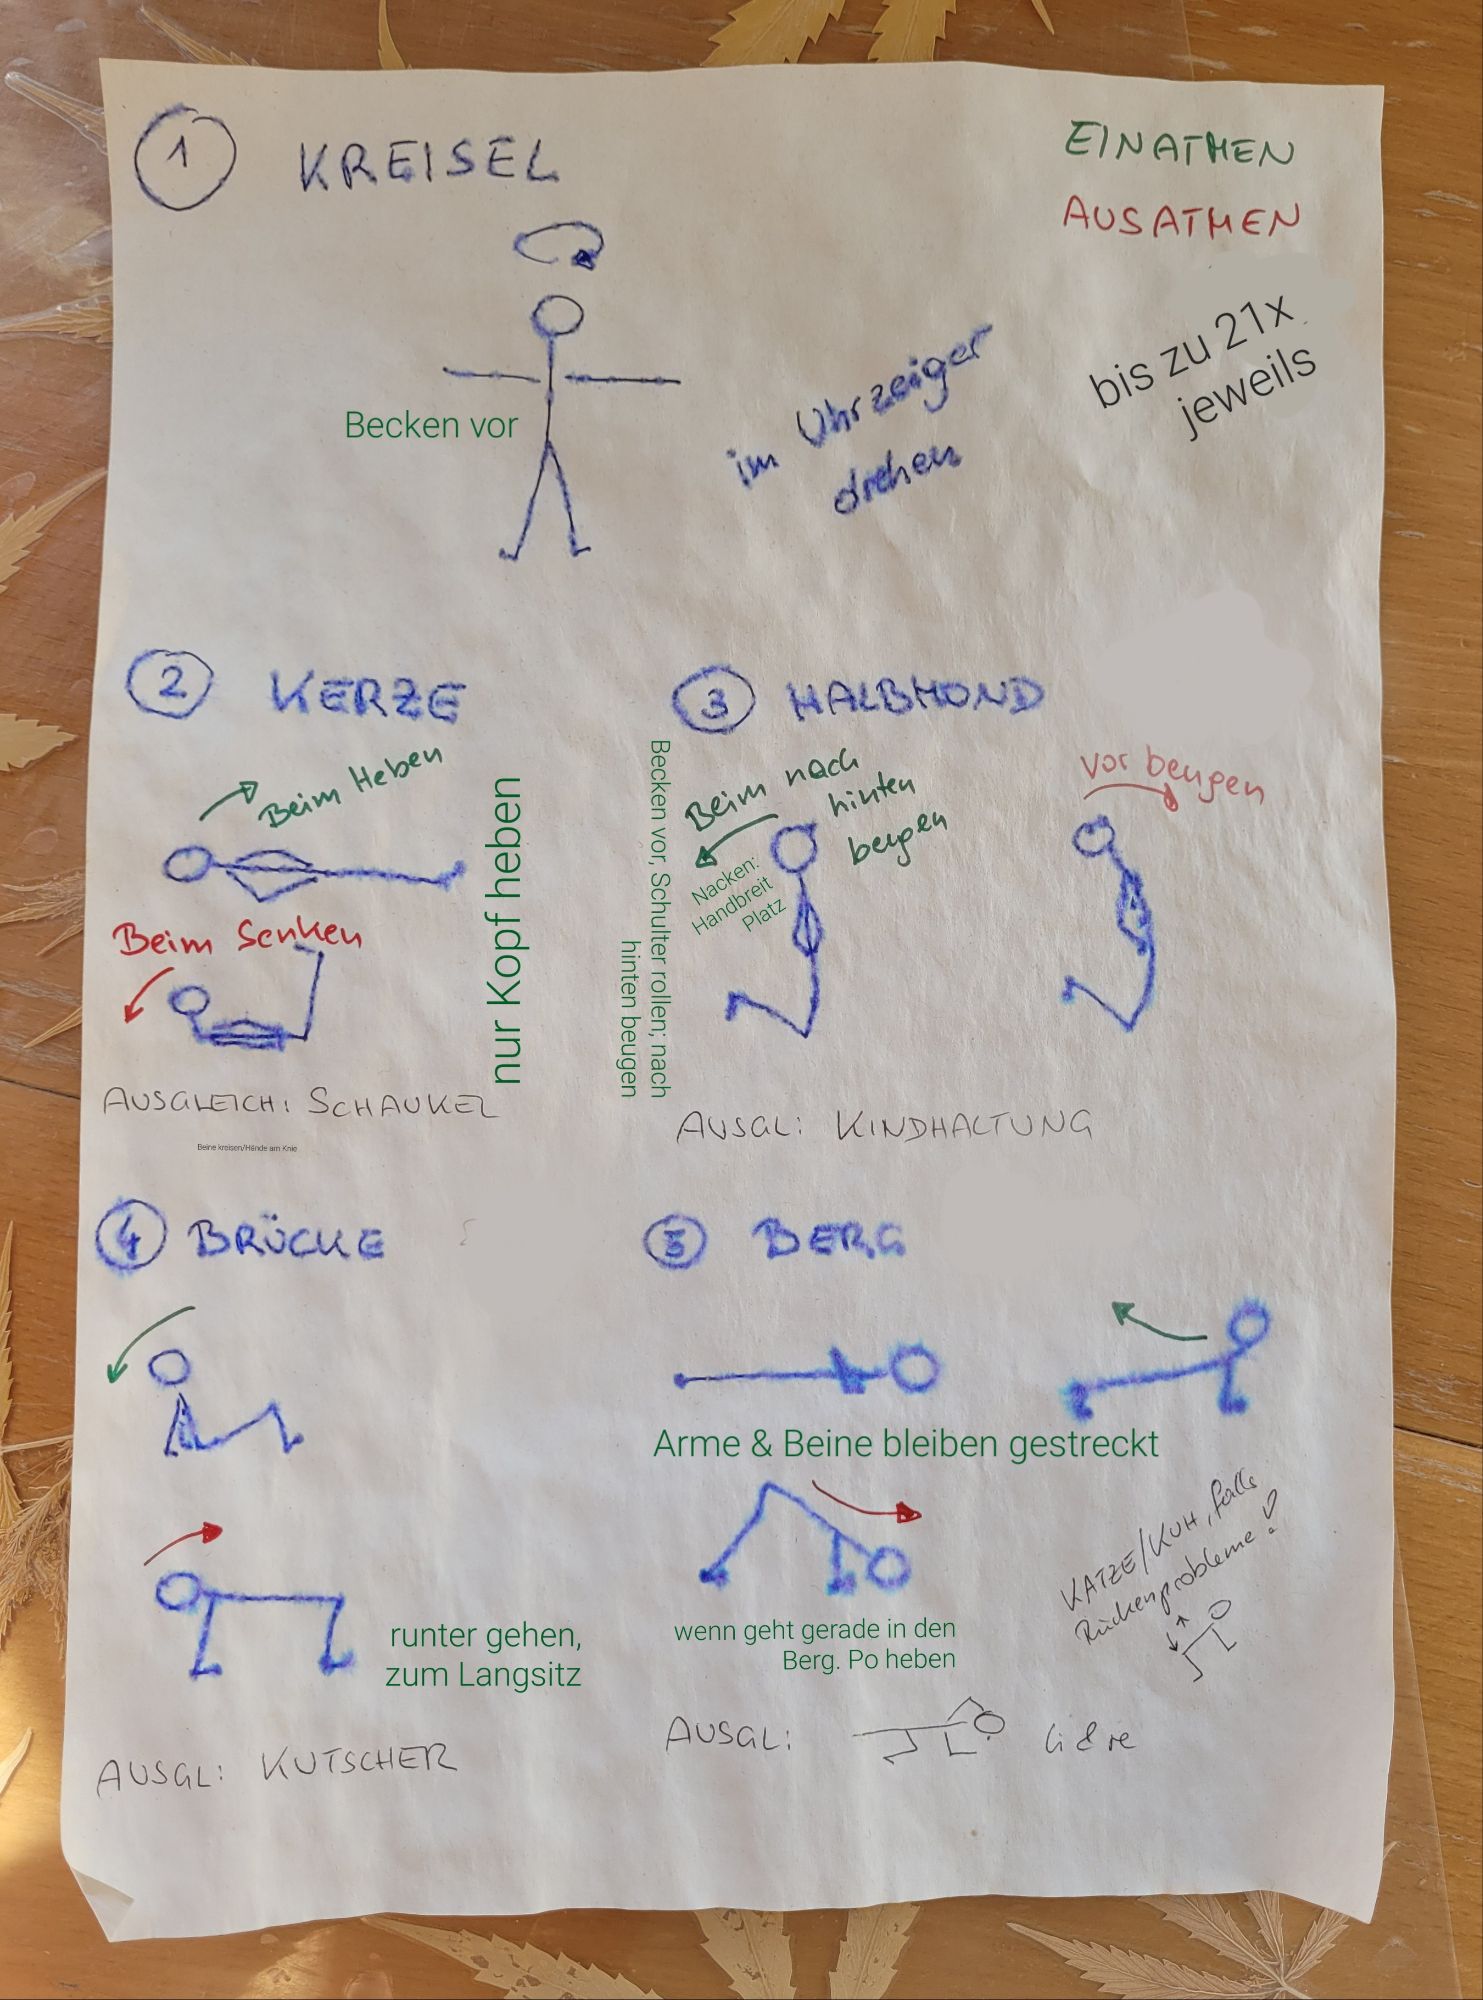 1 KREISEL
EINATMEN
AUSATMEN
bis zu 21x
jeweils
Becken vor
im Uhrzeiger
drehen
2 KERZE
Beim Heben
nur Kopf heben
Beim Senken
AUSGLEICH: SCHAUKEL
Beine kreisen/Hände am Knie
3 HALBMOND
Becken vor, Schulter rollen; nach
hinten beugen
Beim nach
hinten
beugen
Nacken:
Handbreit
Platz
vor beugen
AUSGL: KINDHALTUNG
4 BRÜCKE
runter gehen,
zum Langsitz
AUSGL: KUTSCHER
5 BERG
Arme & Beine bleiben gestreckt
wenn geht gerade in den
Berg. Po heben
KATZE/KUH, falls
Rückenprobleme!
AUSGL: li & re